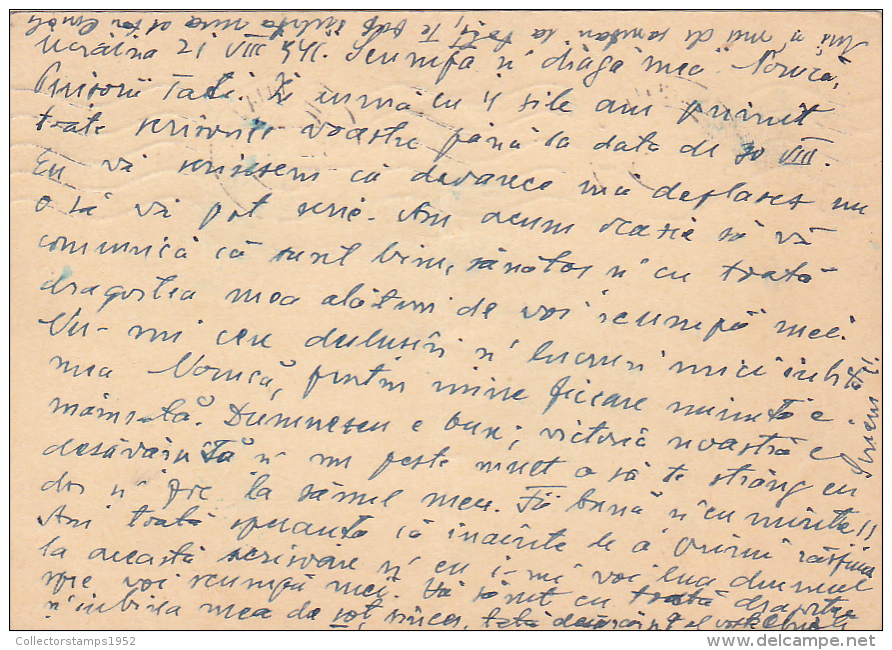 Ucraina 21 VIII 941. Scumpa și draga mea Norică,
Puișorii Tati. În urmă cu 4 zile am primit
toate scrisorile voastre până la data de 30 VII.
Eu vă scrisesem că deoarece mă deplasez nu
o să vă pot scrie. Am acum ocazie să vă
comunică că sunt bine, sănătos și cu toată
dragostea mea alături de voi scumpă mei.
Nu-mi cere dulusiri și lucruri mici iubită
mea Norică, pentru mine fiecare minută e
măins-tă. Dumnezeu e bun; victoria noastră e
desăvârșită și nu peste mult o să te strâng cu
dor și foc la sânul meu. Fii bună și cu minte
Am toată speranța că înainte de a primi
la această scrisoare și eu îmi voi lua drumul
spre voi scumpă mei. Vă sărut cu toată dragostea
și iubirea mea de soț, sincer, tată
Collectorstamps1952
delcampe.net